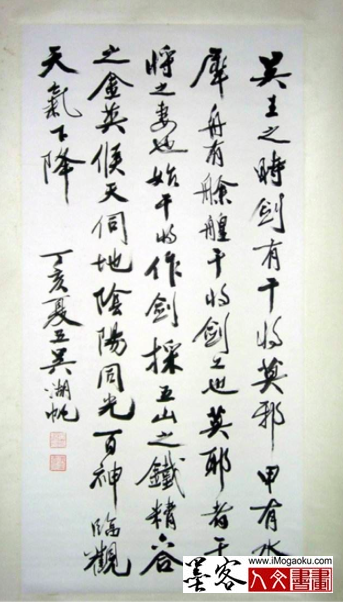 吴王之時剑有干将莫邪甲有水
犀舟有艅艎干将剑工也莫耶者干
将之妻也始干将作剑採五山之鐵精六合
之金英候天伺地陰陽同光百神臨觀
天氣下降
丁亥夏五吴湖帆
墨客
人文書畫
www.iMogaoku.com